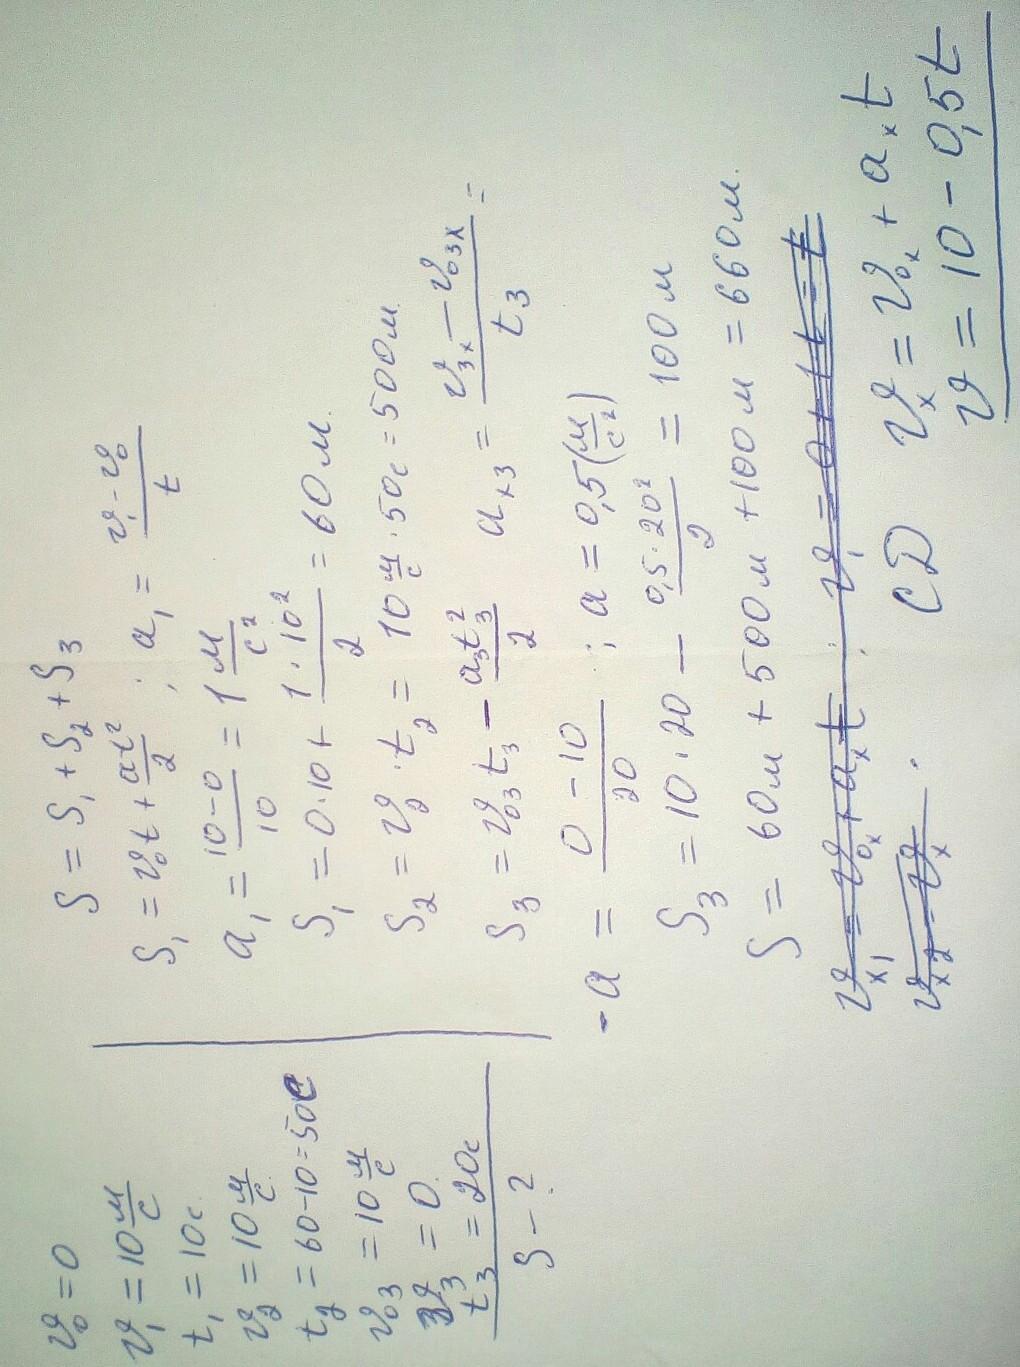 v₀ = 0
v₁ = 10 м/с
t₁ = 10с
v₂ = 10 м/с
t₂ = 60-10=50с
v₀₃ = 10 м/с
v₃ = 0
t₃ = 20с
S - ?
S = S₁ + S₂ + S₃
S₁ = v₀t + at²/2 ; a₁ = (v₁ - v₀)/t
a₁ = (10-0)/10 = 1 м/с²
S₁ = 0·10 + 1·10²/2 = 60м.
S₂ = v₂·t₂ = 10 м/с · 50с = 500м.
S₃ = v₀₃t₃ - a₃t₃²/2 aₓ₃ = (v₃ₓ - v₀₃ₓ)/t₃ =
-a = (0-10)/20 ; a = 0,5 (м/с²)
S₃ = 10·20 - 0,5·20²/2 = 100м
S = 60м + 500м + 100м = 660м.
vₓ₁ = v₀ₓ + aₓt ; v₁ = 0 + 1t = t
vₓ₂ = vₓ .
CD vₓ = v₀ₓ + aₓt
v = 10 - 0,5t